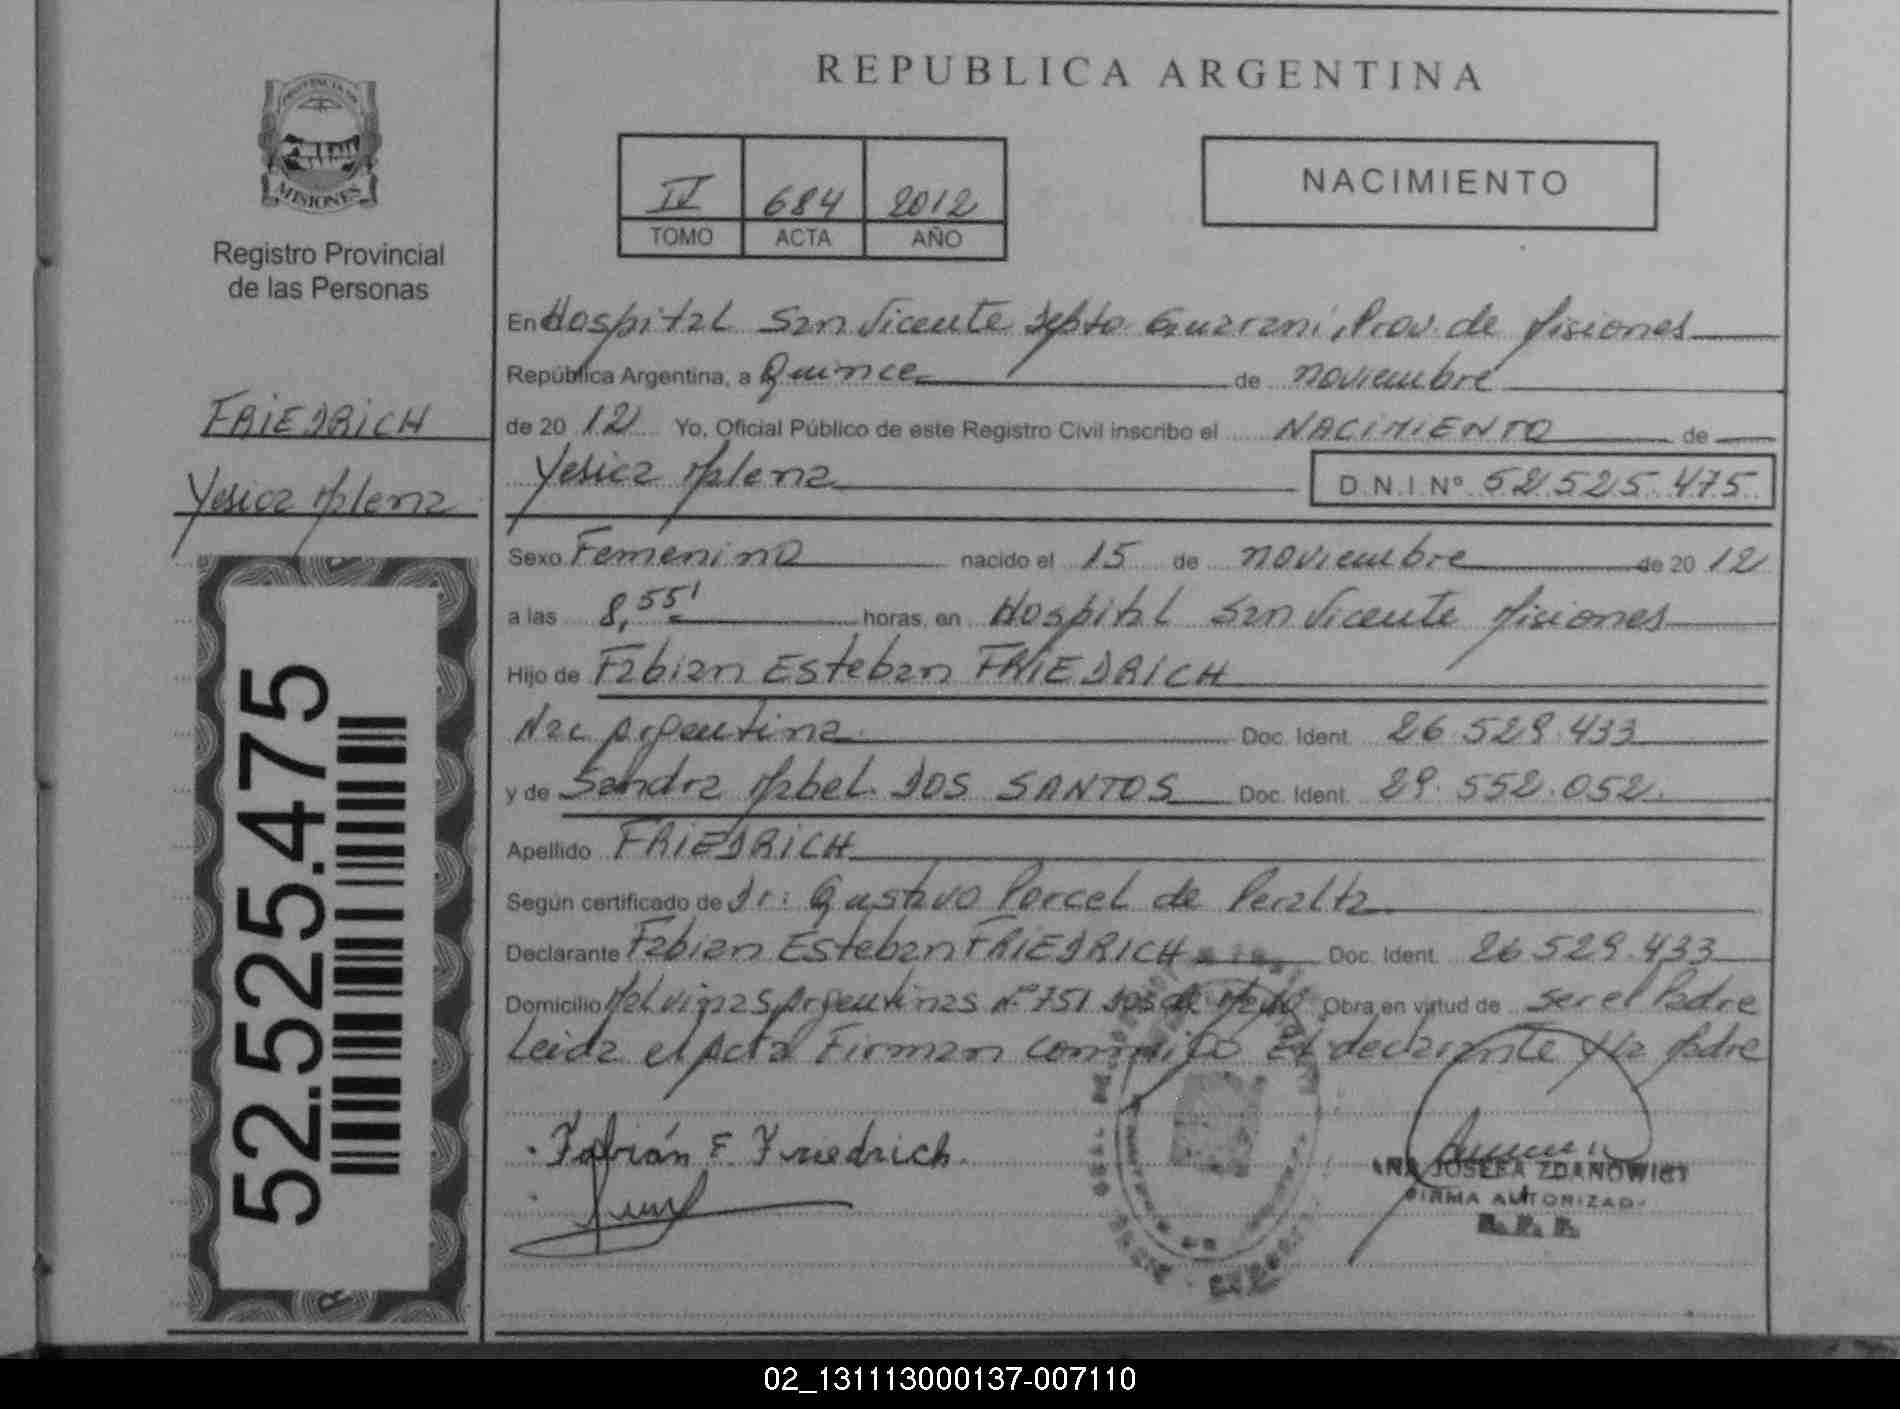 REPUBLICA ARGENTINA
PROVINCIA DE
MISIONES
Registro Provincial
de las Personas
IV 684 2012
TOMO ACTA AÑO
NACIMIENTO
FRIEDRICH
Yesica Malena
52.525.475
En Hospital San Vicente Depto Guaraní, Prov. de Misiones
República Argentina, a Quince de noviembre
de 2012 Yo, Oficial Público de este Registro Civil inscribo el NACIMIENTO de
Yesica Malena D.N.I Nº 52.525.475
Sexo Femenino nacido el 15 de noviembre de 2012
a las 8,55' horas, en Hospital San Vicente Misiones
Hijo de Fabian Esteban FRIEDRICH
Nac Argentina Doc. Ident. 26.529.433
y de Sandra Mabel DOS SANTOS Doc. Ident. 29.552.052.
Apellido FRIEDRICH
Según certificado de Dr: Gustavo Porcel de Peralta
Declarante Fabian Esteban FRIEDRICH Doc. Ident. 26.529.433
Domicilio Malvinas Argentinas Nº 751 Dos de Mayo Obra en virtud de ser el Padre
Leida el Acta Firman conmigo El declarante y la Madre
Fabián E Friedrich.
ANA JOSEFA ZDANOWICZ
FIRMA AUTORIZADA
R. P. P.
02_131113000137-007110